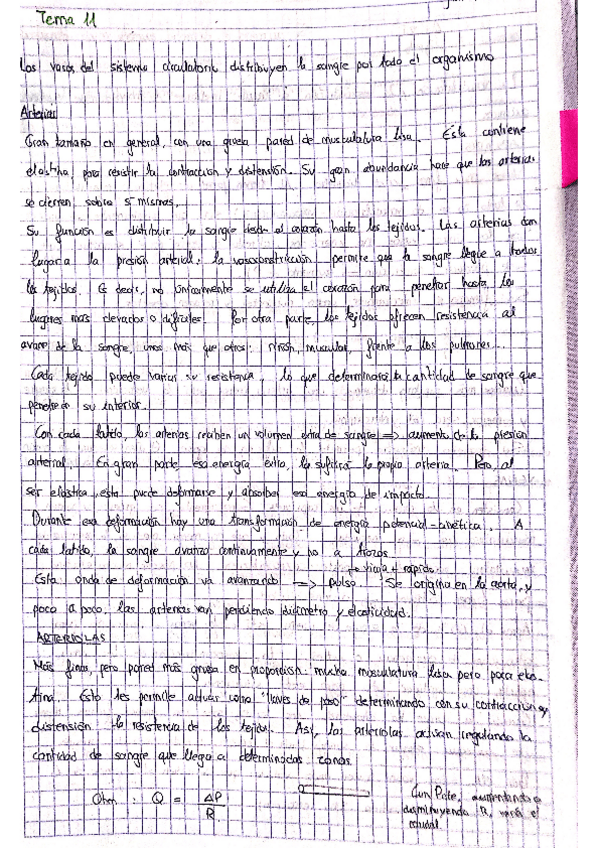 Tema 11
Los vasos del sistema circulatorio distribuyen la sangre por todo el organismo
Arterias
Gran tamaño en general, con una gruesa pared de musculatura lisa. Esta contiene
elastina, para resistir la contracción y distensión. Su gran abundancia hace que las arterias
se cierren sobre sí mismas.
Su función es distribuir la sangre desde el corazón hasta los tejidos. Las arterias dan
lugar a la presión arterial: la vasoconstricción permite que la sangre llegue a todos
los tejidos. Es decir, no únicamente se utiliza el corazón para penetrar hasta los
lugares más elevados o difíciles. Por otra parte, los tejidos ofrecen resistencia al
avance de la sangre, unos más que otros: riñón, muscular, frente a los pulmones.
Cada tejido puede variar su resistencia, lo que determinará la cantidad de sangre que
penetre a su interior.
Con cada latido, las arterias reciben un volumen extra de sangre => aumento de la presión
arterial. En gran parte, esa energía extra, la sufrirá la propia arteria. Pero, al
ser elástica, esta puede deformarse y absorber esa energía de impacto.
Durante esa deformación hay una transformación de energía potencial-cinética. A
cada latido, la sangre avanza continuamente y no a trozos.
viaja + rápido
Esta onda de deformación va avanzando => pulso. Se origina en la aorta, y
poco a poco, las arterias van perdiendo diámetro y elasticidad.
ARTERIOLAS
Más finas, pero pared más gruesa en proporción: mucha musculatura lisa pero poca elas-
tina. Esto les permite actuar como "llaves de paso" determinando con su contracción y
distensión la resistencia de los tejidos. Así, las arteriolas actúan regulando la
cantidad de sangre que llega a determinadas zonas.
Ohm : Q = ΔP / R
Con P cte, aumentando o
disminuyendo R, varía el
caudal.